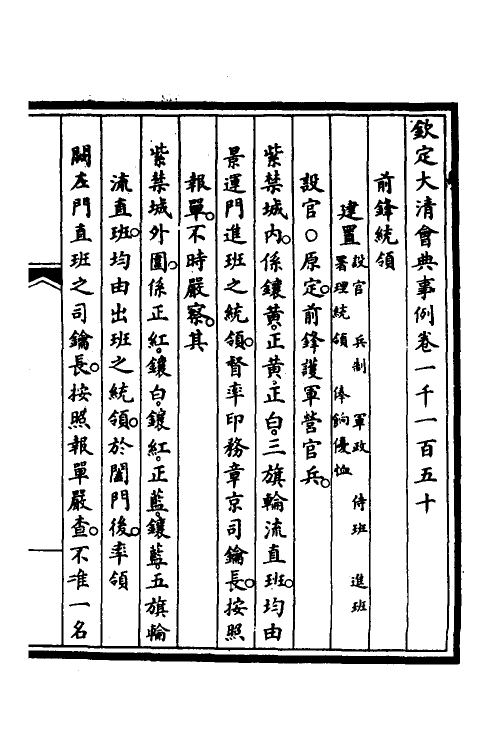 欽定大清會典事例卷一千一百五十
前鋒統領
建置 設官 兵制 軍政 侍班 進班
署理統領 俸餉優恤
設官〇原定。前鋒護軍營官兵。
紫禁城內。係鑲黃。正黃。正白。三旗輪流直班。均由
景運門進班之統領。督率印務章京司鑰長。按照
報單。不時嚴察。其
紫禁城外圍。係正紅。鑲白。鑲紅。正藍。鑲藍。五旗輪
流直班。均由出班之統領。於闔門後。率領
闕左門直班之司鑰長。按照報單嚴查。不准一名